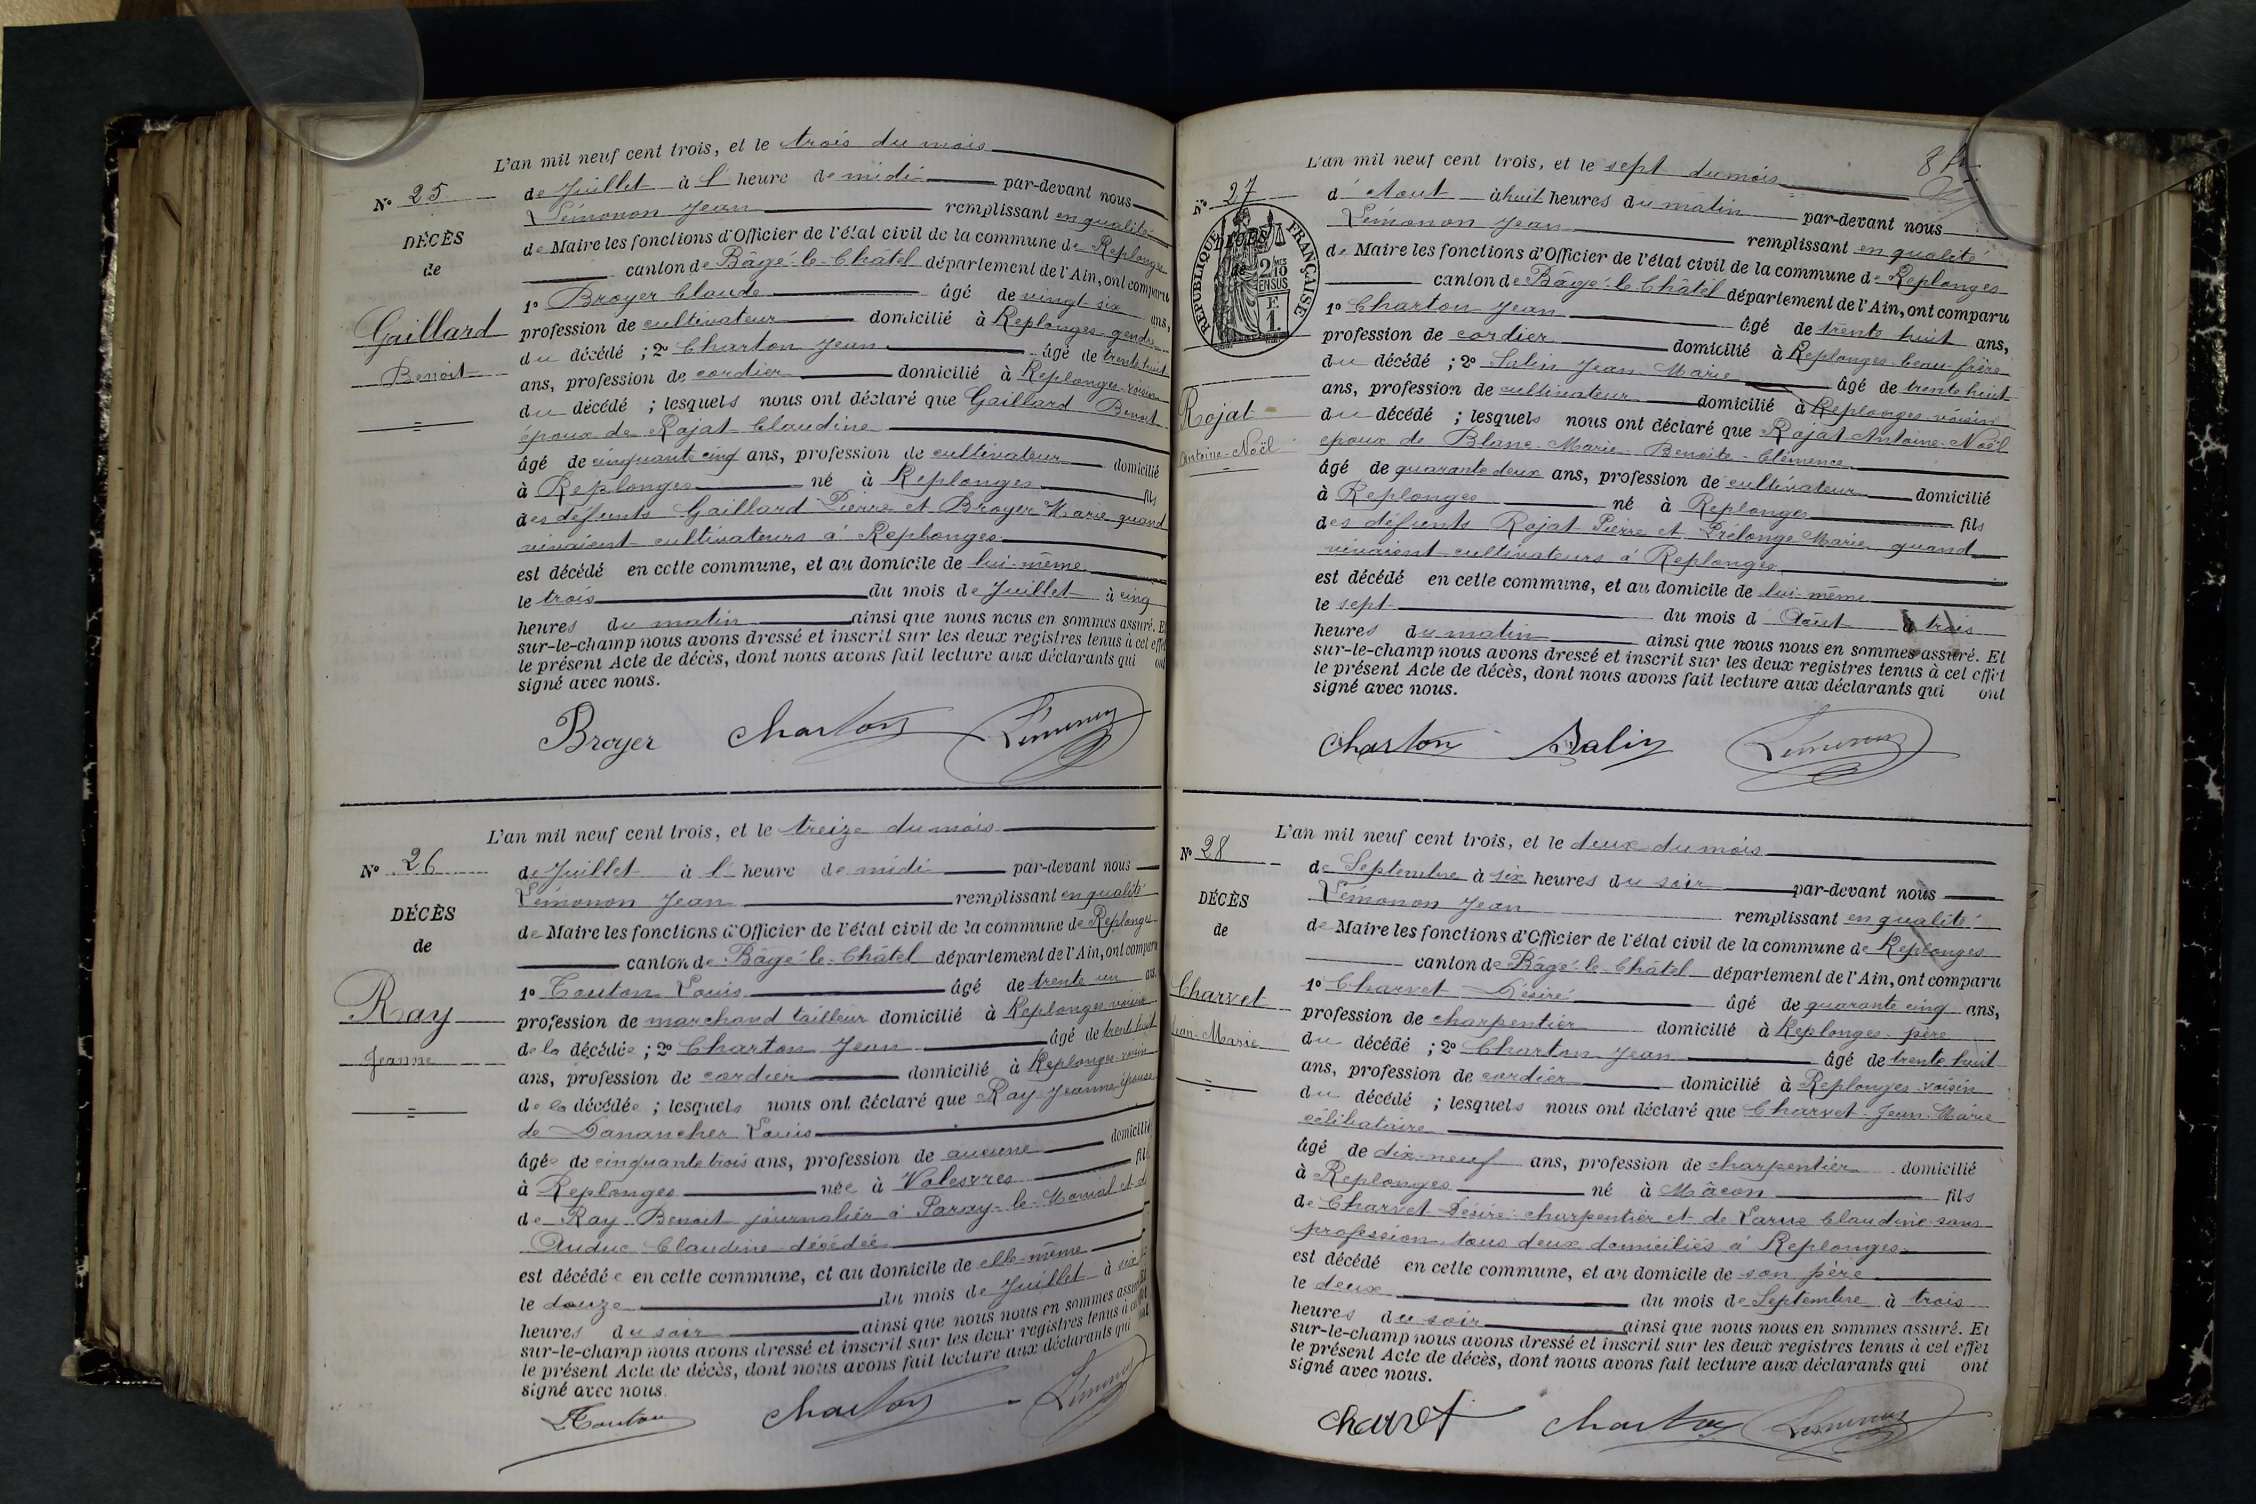 L'an mil neuf cent trois, et le trois du mois
N° 25
de Juillet à l' heure de midi par-devant nous
Lémonon Jean remplissant en qualité
DÉCÈS
de Maire les fonctions d'Officier de l'état civil de la commune de Replonges
de
canton de Bâgé-le-Châtel département de l'Ain, ont comparu
1° Broyer Claude âgé de vingt six ans,
Gaillard
profession de cultivateur domicilié à Replonges gendre
du décédé ; 2° Charton Jean âgé de trente huit
Benoit
ans, profession de cordier domicilié à Replonges voisin
du décédé ; lesquels nous ont déclaré que Gaillard Benoit
époux de Rajat Claudine
âgé de cinquante cinq ans, profession de cultivateur domicilié
à Replonges né à Replonges fils
des défunts Gaillard Pierre et Broyer Marie quand
vivaient cultivateurs à Replonges
est décédé en cette commune, et au domicile de lui-même
le trois du mois de Juillet à cinq
heures du matin ainsi que nous nous en sommes assuré. Et
sur-le-champ nous avons dressé et inscrit sur les deux registres tenus à cet effet
le présent Acte de décès, dont nous avons fait lecture aux déclarants qui ont
signé avec nous.
Broyer Charton Lémonon
L'an mil neuf cent trois, et le treize du mois
N° 26
de Juillet à l' heure de midi par-devant nous
Lémonon Jean remplissant en qualité
DÉCÈS
de Maire les fonctions d'Officier de l'état civil de la commune de Replonges
de
canton de Bâgé-le-Châtel département de l'Ain, ont comparu
1° Touton Louis âgé de trente un ans
Ray
profession de marchand tailleur domicilié à Replonges voisin
de la décédée ; 2° Charton Jean âgé de trente huit
Jeanne
ans, profession de cordier domicilié à Replonges voisin
de la décédée ; lesquels nous ont déclaré que Ray Jeanne épouse
de Danancher Louis
âgée de cinquante trois ans, profession de aucune domicilié
à Replonges née à Volesvres fille
de Ray Benoit journalier à Paray-le-Monial et d
Auduc Claudine décédée
est décédée en cette commune, et au domicile de elle-même
le douze du mois de Juillet à six
heures du soir ainsi que nous nous en sommes assuré
sur-le-champ nous avons dressé et inscrit sur les deux registres tenus à cet effet
le présent Acte de décès, dont nous avons fait lecture aux déclarants qui ont
signé avec nous.
Touton Charton Lémonon
L'an mil neuf cent trois, et le sept du mois
N° 27
d' Aout à huit heures du matin par-devant nous
Lémonon Jean remplissant en qualité
RÉPUBLIQUE FRANÇAISE
2/10 EN SUS
F 1
de Maire les fonctions d'Officier de l'état civil de la commune de Replonges
canton de Bâgé-le-Châtel département de l'Ain, ont comparu
1° Charton Jean âgé de trente huit ans,
profession de cordier domicilié à Replonges beau-frère
du décédé ; 2° Salin Jean Marie âgé de trente huit
Rojat
ans, profession de cultivateur domicilié à Replonges voisin
du décédé ; lesquels nous ont déclaré que Rojat Antoine-Noël
Antoine-Noël
époux de Blanc Marie Benoite Clémence
âgé de quarante deux ans, profession de cultivateur domicilié
à Replonges né à Replonges fils
des défunts Rojat Pierre et Prélonge Marie quand
vivaient cultivateurs à Replonges
est décédé en cette commune, et au domicile de lui-même
le sept du mois d' Août à trois
heures du matin ainsi que nous nous en sommes assuré. Et
sur-le-champ nous avons dressé et inscrit sur les deux registres tenus à cet effet
le présent Acte de décès, dont nous avons fait lecture aux déclarants qui ont
signé avec nous.
Charton Salin Lémonon
L'an mil neuf cent trois, et le deux du mois
N° 28
de Septembre à six heures du soir par-devant nous
Lémonon Jean remplissant en qualité
DÉCÈS
de Maire les fonctions d'Officier de l'état civil de la commune de Replonges
de
canton de Bâgé-le-Châtel département de l'Ain, ont comparu
1° Charvet Désiré âgé de quarante cinq ans,
Charvet
profession de charpentier domicilié à Replonges père
Jean-Marie
du décédé ; 2° Charton Jean âgé de trente huit
ans, profession de cordier domicilié à Replonges voisin
du décédé ; lesquels nous ont déclaré que Charvet Jean-Marie
célibataire
âgé de dix-neuf ans, profession de charpentier domicilié
à Replonges né à Mâcon fils
de Charvet Désiré charpentier et de Larue Claudine sans
profession tous deux domiciliés à Replonges
est décédé en cette commune, et au domicile de son père
le deux du mois de Septembre à trois
heures du soir ainsi que nous nous en sommes assuré. Et
sur-le-champ nous avons dressé et inscrit sur les deux registres tenus à cet effet
le présent Acte de décès, dont nous avons fait lecture aux déclarants qui ont
signé avec nous.
Charvet Charton Lémonon